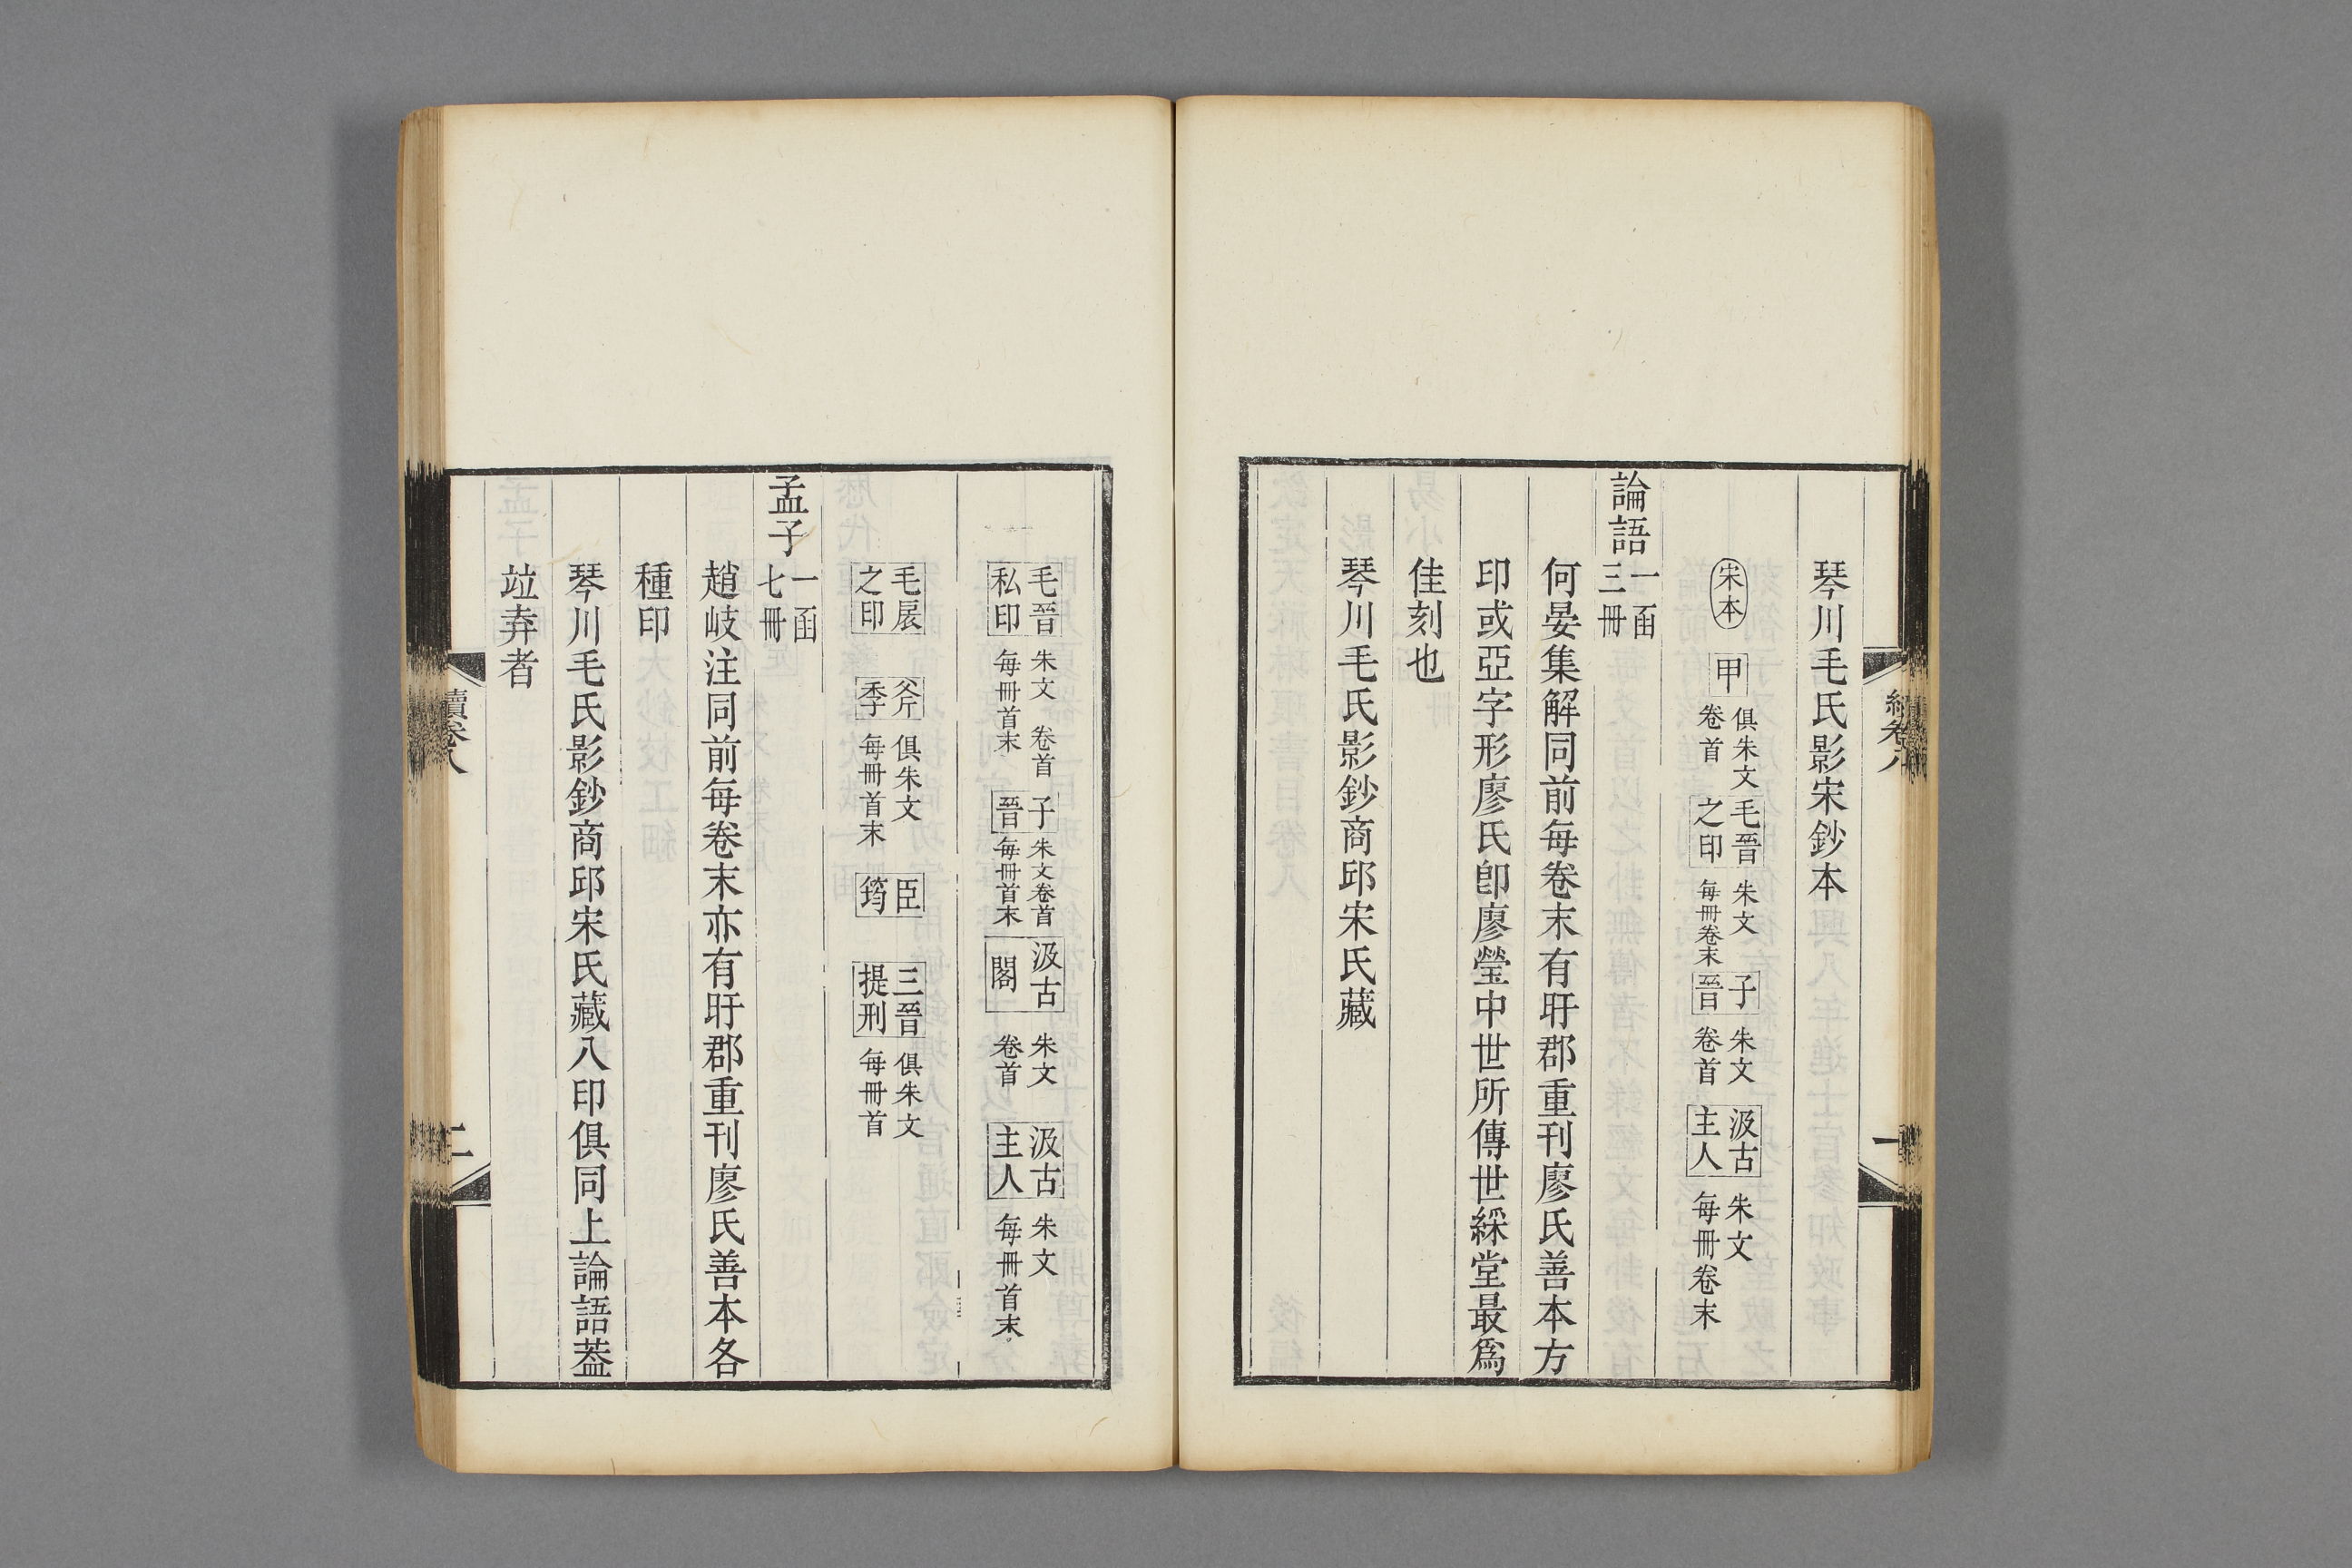 琴川毛氏影宋鈔本
宋本 甲 俱朱文卷首 毛晉之印 朱文每冊卷末 子晉 朱文卷首 汲古主人 朱文每冊卷末
論語 一函三冊
何晏集解同前每卷末有盱郡重刊廖氏善本方
印或亞字形廖氏卽廖瑩中世所傳世綵堂最爲
佳刻也
琴川毛氏影鈔商邱宋氏藏
續卷八
一
毛晉私印 朱文 卷首每冊首末 子晉 朱文卷首每冊首末 汲古閣 朱文卷首 汲古主人 朱文每冊首末
毛扆之印 斧季 俱朱文每冊首末 臣筠 三晉提刑 俱朱文每冊首
孟子 一函七冊
趙岐注同前每卷末亦有盱郡重刊廖氏善本各
種印
琴川毛氏影鈔商邱宋氏藏八印俱同上論語葢
竝弆者
續卷八
二